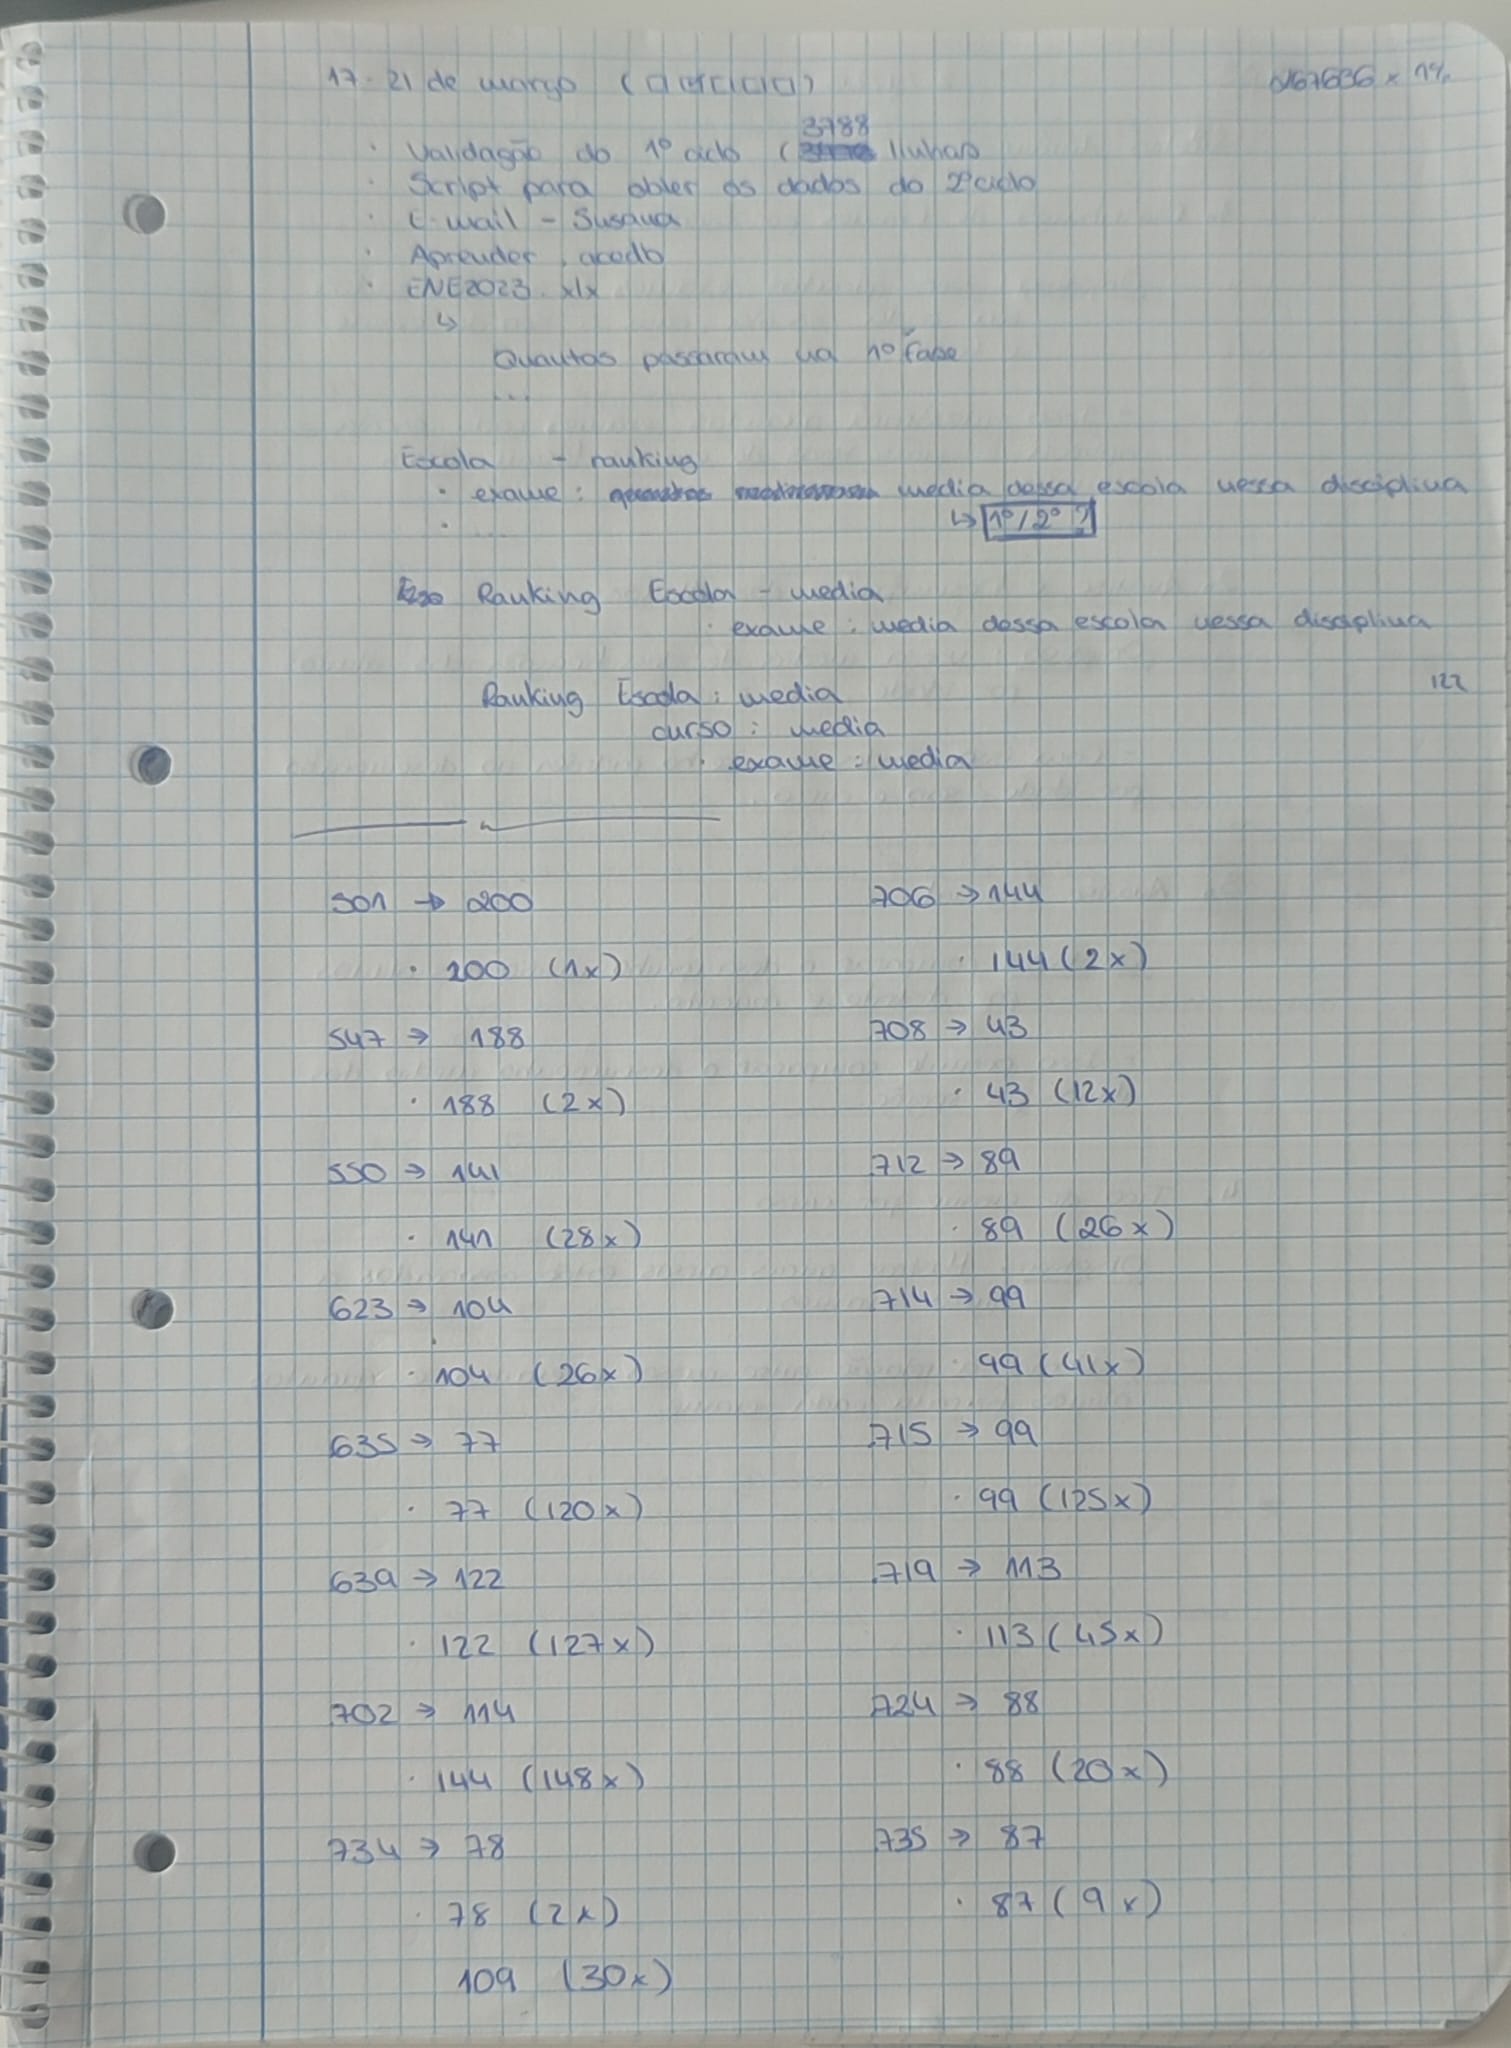 17-21 de março (□□□□□)
3788
· Validação do 1º ciclo ( linhas
· Script para obter os dados do 2º ciclo
· E-mail - Susana
· Aprender .accdb
· ENE2023.xlx
↳
Quantos passaram na 1º fase
...
Escola - ranking
· exame: media dessa escola nessa disciplina
· ...
↳ 1º/2º ?
Ranking Escola - media
· exame: media dessa escola nessa disciplina
122
Ranking Escola: media
curso: media
· exame: media
501 → 200
· 200 (1x)
547 → 188
· 188 (2x)
550 → 141
· 141 (28x)
623 → 104
· 104 (26x)
635 → 77
· 77 (120x)
639 → 122
· 122 (127x)
702 → 114
· 144 (148x)
734 → 78
· 78 (2x)
109 (30x)
706 → 144
· 144 (2x)
708 → 43
· 43 (12x)
712 → 89
· 89 (26x)
714 → 99
· 99 (41x)
715 → 99
· 99 (125x)
719 → 113
· 113 (45x)
724 → 88
· 88 (20x)
735 → 87
· 87 (9x)